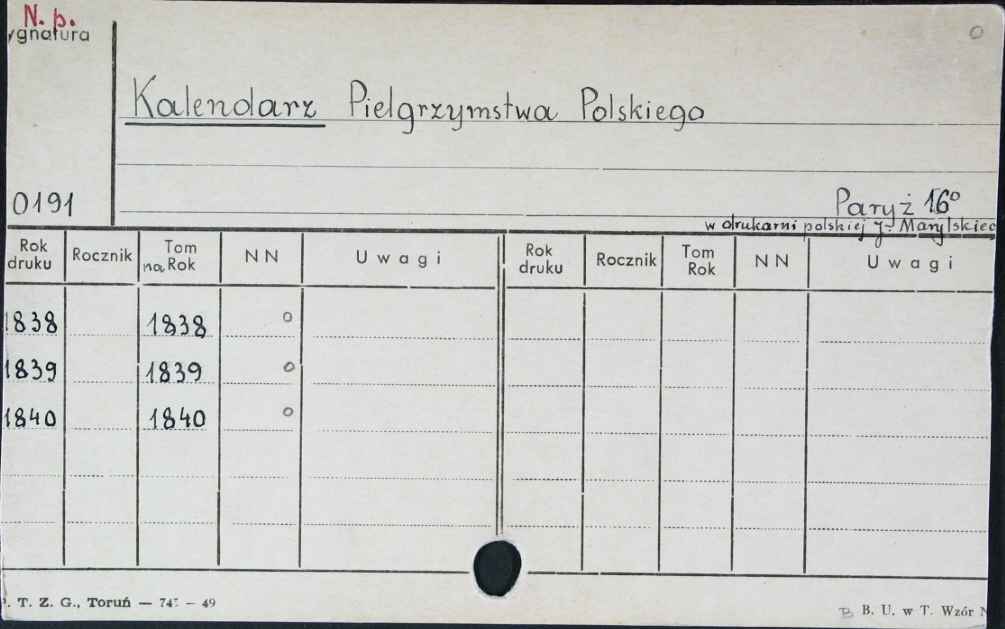 N. p.
ygnatura
Kalendarz Pielgrzymstwa Polskiego
0191
Paryż 16°
w drukarni polskiej
Rok druku Rocznik Tom na Rok N N U w a g i Rok druku Rocznik Tom Rok N N U w a g i
1838 1838 o
1839 1839 o
1840 1840 o
. T. Z. G., Toruń — 74 – 49
B B. U. w T. Wzór N